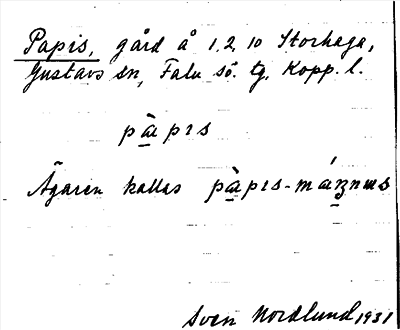 Papis, gård å 1,2,10 Storhaga,
Gustavs sn, Falu sö. tg, Kopp. l.
pà̱pıs
Ägaren kallas pà̱pıs-máṉnus
Sven Nordlund 1931